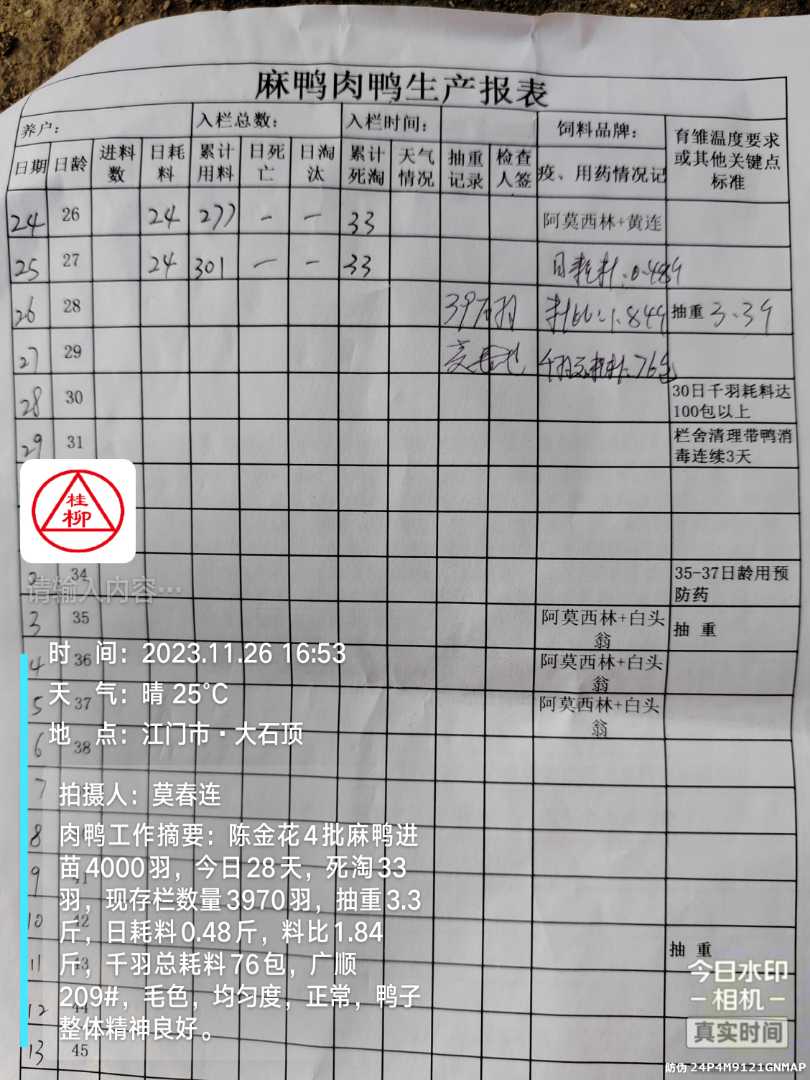 麻鸭肉鸭生产报表
养户: 入栏总数: 入栏时间: 饲料品牌: 育雏温度要求或其他关键点标准
日期 日龄 进料数 日耗料 累计用料 日死亡 日淘汰 累计死淘 天气情况 抽重记录 检查人签 疫、用药情况记
24 26 24 277 — — 33 阿莫西林+黄连
25 27 24 301 — — 33 日耗料:0.48斤
26 28 料比:1.84斤 抽重 3.3斤
27 29 76包
28 30 30日千羽耗料达100包以上
29 31 栏舍清理带鸭消毒连续3天
桂
柳
2 34 35-37日龄用预防药
请输入内容…
3 35 阿莫西林+白头翁 抽 重
4 36 阿莫西林+白头翁
5 37 阿莫西林+白头翁
6 38
7
8
9 41
10 42 抽 重
11 43
12 44
13 45
时 间: 2023.11.26 16:53
天 气: 晴 25℃
地 点: 江门市·大石顶
拍摄人: 莫春连
肉鸭工作摘要: 陈金花4批麻鸭进
苗4000羽，今日28天，死淘33
羽，现存栏数量3970羽，抽重3.3
斤，日耗料0.48斤，料比1.84
斤，千羽总耗料76包，广顺
209#，毛色，均匀度，正常，鸭子
整体精神良好。
今日水印
相机
真实时间
防伪 24P4M9121GNMAP